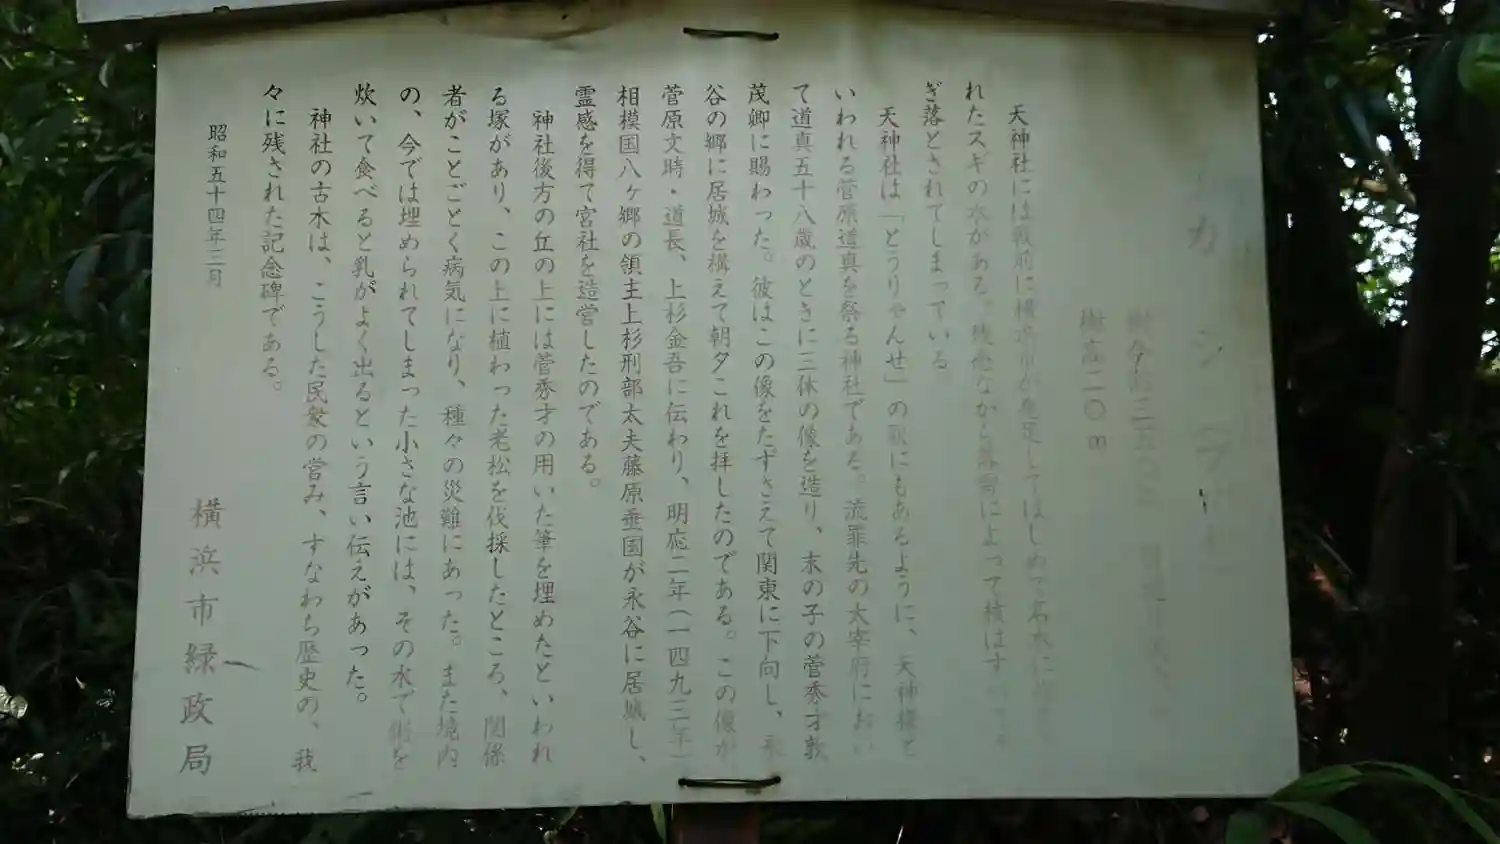 樹高二〇m
天神社には戦前に横浜市が発足してはじめて名木に
れたスギの木がある。残念ながら落雷によって枝はす
ぎ落とされてしまっている。
天神社は「とうりゃんせ」の歌にもあるように、天神様と
いわれる菅原道真を祭る神社である。流罪先の太宰府におい
て道真五十八歳のときに三体の像を造り、末の子の菅秀才敦
茂卿に賜わった。彼はこの像をたずさえて関東に下向し、永
谷の郷に居城を構えて朝夕これを拝したのである。この像が
菅原文時・道長、上杉金吾に伝わり、明応二年(一四九三年)
相模国八ヶ郷の領主上杉刑部太夫藤原乗国が永谷に居城し、
霊感を得て宮社を造営したのである。
神社後方の丘の上には菅秀才の用いた筆を埋めたといわれ
る塚があり、この上に植わった老松を伐採したところ、関係
者がことごとく病気になり、種々の災難にあった。また境内
の、今では埋められてしまった小さな池には、その水で粥を
炊いて食べると乳がよく出るという言い伝えがあった。
神社の古木は、こうした民衆の営み、すなわち歴史の、我
々に残された記念碑である。
昭和五十四年三月
横浜市緑政局